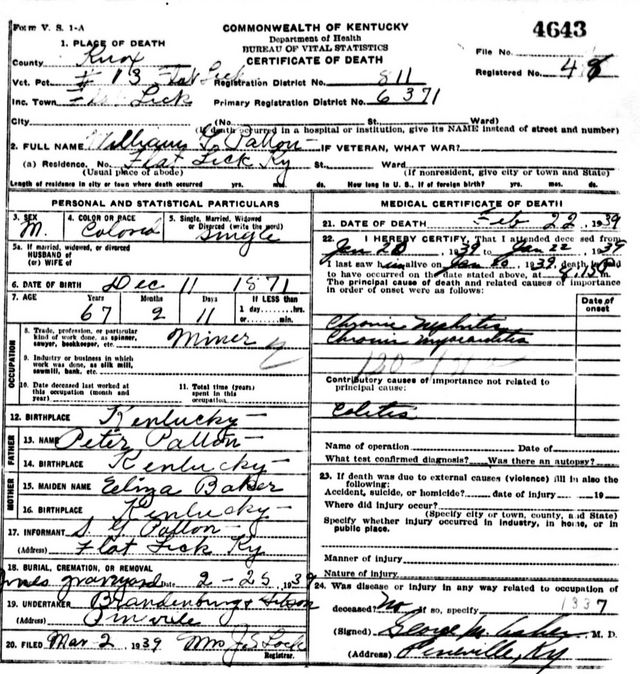 Form V. S. 1-A
COMMONWEALTH OF KENTUCKY
Department of Health
BUREAU OF VITAL STATISTICS
CERTIFICATE OF DEATH
4643
File No.
Registered No. 48
1. PLACE OF DEATH
County Knox
Vct. Pct. # 13 Flat Lick Registration District No. 811
Inc. Town Flat Lick Primary Registration District No. 6371
City (No. St. Ward)
(If death occurred in a hospital or institution, give its NAME instead of street and number)
2. FULL NAME William Patton IF VETERAN, WHAT WAR?
(a) Residence. No. Flat Lick Ky St. Ward
(Usual place of abode) (If nonresident, give city or town and State)
Length of residence in city or town where death occurred yrs. mos. ds. How long in U. S., if of foreign birth? yrs. mos. ds.
PERSONAL AND STATISTICAL PARTICULARS
3. SEX M. 4. COLOR OR RACE Colored 5. Single, Married, Widowed or Divorced (write the word) Single
5a. If married, widowed, or divorced
HUSBAND of
(or) WIFE of
6. DATE OF BIRTH Dec 11 1871
7. AGE Years 67 Months 2 Days 11 If LESS than 1 day hrs. or min.
OCCUPATION
8. Trade, profession, or particular kind of work done, as spinner, sawyer, bookkeeper, etc. Miner
9. Industry or business in which work was done, as silk mill, sawmill, bank, etc.
10. Date deceased last worked at this occupation (month and year) 11. Total time (years) spent in this occupation
12. BIRTHPLACE Kentucky
FATHER
13. NAME Peter Patton
14. BIRTHPLACE Kentucky
MOTHER
15. MAIDEN NAME Eliza Baker
16. BIRTHPLACE Kentucky
17. INFORMANT Patton
(Address) Flat Lick Ky
18. BURIAL, CREMATION, OR REMOVAL
graveyard Date 2-25 1939
19. UNDERTAKER Brandenburg
(Address) Pineville
20. FILED Mar 2, 1939 Mrs Lock
Registrar.
MEDICAL CERTIFICATE OF DEATH
21. DATE OF DEATH Feb 22, 1939
22. I HEREBY CERTIFY, That I attended deceased from
Jan 20 1939 to Jan 22, 1939
I last saw him alive on Jan 20 1939, death is said
to have occurred on the date stated above, at m.
The principal cause of death and related causes of importance in order of onset were as follows:
Date of onset
Chronic Nephritis
Chronic myocarditis
Contributory causes of importance not related to principal cause:
Colitis
Name of operation Date of
What test confirmed diagnosis? Was there an autopsy?
23. If death was due to external causes (violence) fill in also the following:
Accident, suicide, or homicide? date of injury 19
Where did injury occur?
(Specify city or town, county, and State)
Specify whether injury occurred in industry, in home, or in public place.
Manner of injury
Nature of injury
24. Was disease or injury in any way related to occupation of
deceased? no If so, specify 1337
(Signed) George M. Asher M. D.
(Address) Pineville, Ky